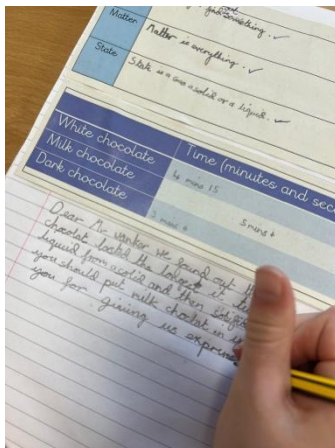 find something.
Matter
Matter is everything.
State
State is a solid or a liquid.
Time (minutes and sec
White chocolate
4 mins 15
Milk chocolate
5 mins
Dark chocolate
3 mins
Dear Mr wonker we found out th
chocolat lasted the longest it
liquid from a solid and then
you should put milk choclat in
you for giving us